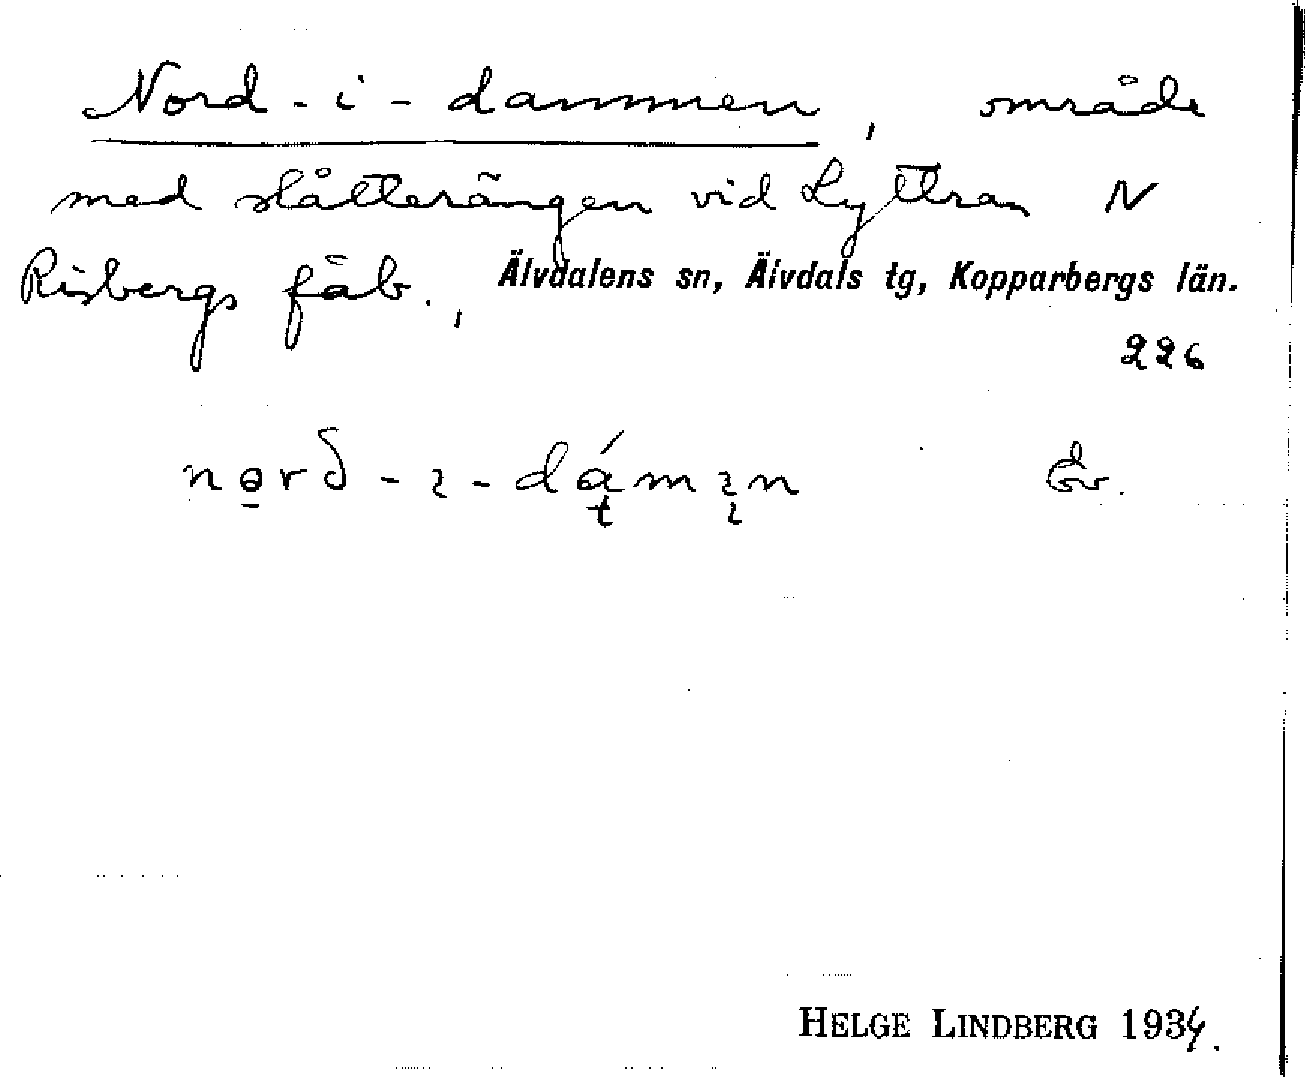 Nord-i-dammen, område
med slåtterängen vid Lyttran N
Risbergs fäb., Älvdalens sn, Älvdals tg, Kopparbergs län.
226
Ev.
HELGE LINDBERG 1934.